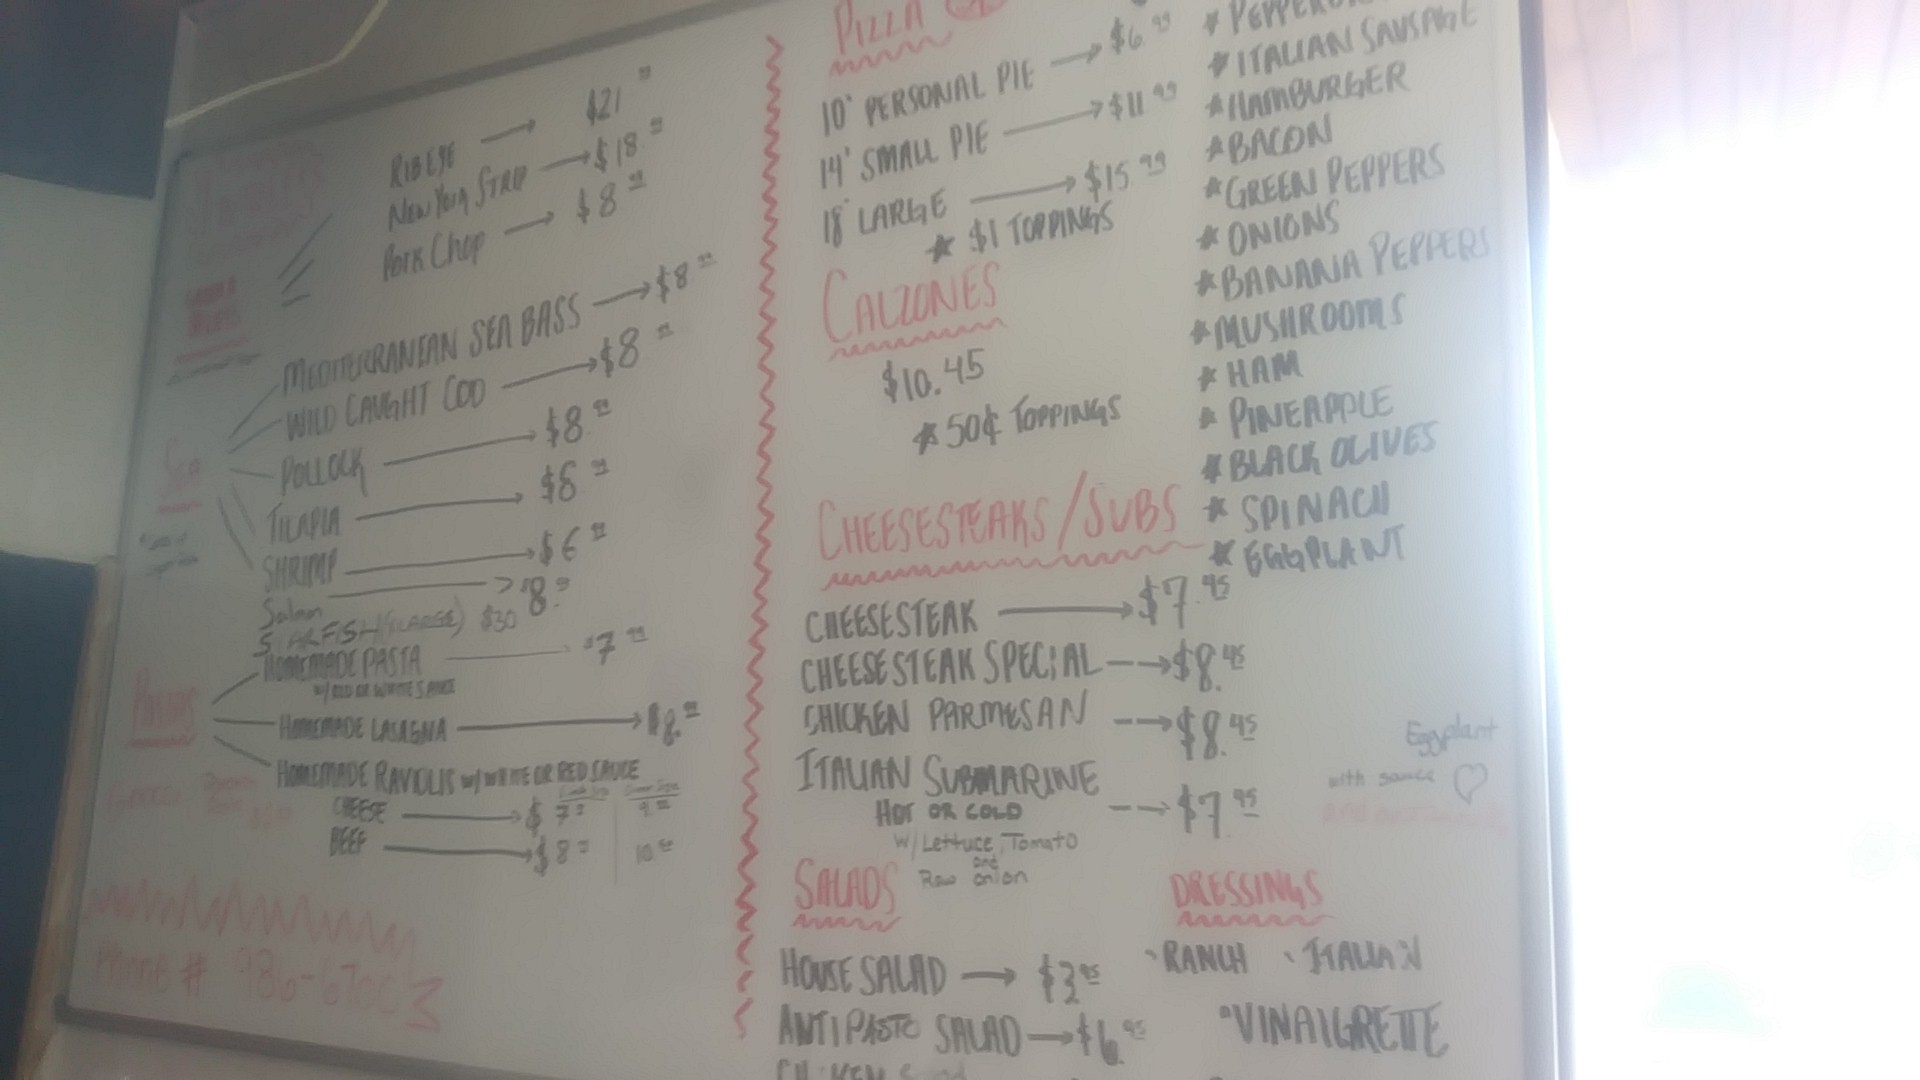 RIBEYE $21
NEW YORK STRIP $18
PORK CHOP $8
MEDITERRANEAN SEA BASS $8
WILD CAUGHT COD $8
SEA
POLLOCK $8
TILAPIA
SHRIMP $6
Salmon $8
STARFISH $30
HOMEMADE PASTA $7
W/ RED OR WHITE SAUCE
HOMEMADE LASAGNA $8.
HOMEMADE RAVIOLIS W/ WHITE OR RED SAUCE
CHEESE $7
BEEF $8 10
Phone # 986-6700
PIZZA
10" PERSONAL PIE $6 99
14" SMALL PIE $11 99
18" LARGE $15 99
* $1 TOPPINGS
CALZONES
$10.45
* 50¢ TOPPINGS
CHEESESTEAKS/SUBS
CHEESESTEAK $7.95
CHEESESTEAK SPECIAL $8.45
CHICKEN PARMESAN $8.45
ITALIAN SUBMARINE
HOT OR COLD $7.95
W/ Lettuce, Tomato
and
Raw onion
SALADS
HOUSE SALAD $3.95
ANTIPASTO SALAD $6.95
CHICKEN
* ITALIAN SAUSAGE
* HAMBURGER
* BACON
* GREEN PEPPERS
* ONIONS
* BANANA PEPPERS
* MUSHROOMS
* HAM
* PINEAPPLE
* BLACK OLIVES
* SPINACH
* EGGPLANT
Eggplant
with sauce ♡
DRESSINGS
• RANCH • ITALIAN
• VINAIGRETTE